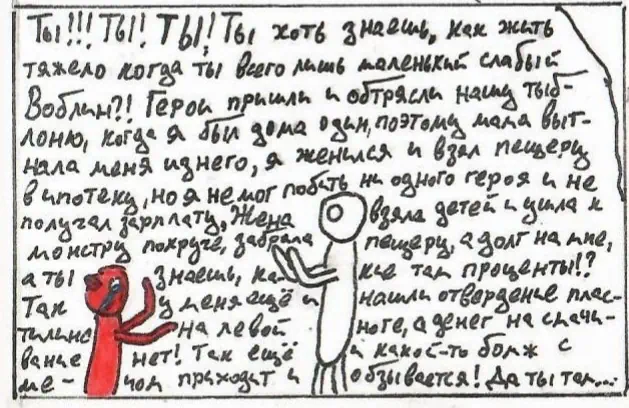 Ты!!! Ты! Ты! Ты хоть знаешь, как жить
тяжело когда ты всего лишь маленький слабый
Воблин?! Герои пришли и обтрясли нашу тыб-
лоню, когда я был дома один, поэтому мама выг-
нала меня из него, я женился и взял пещеру
в ипотеку, но я не мог побить ни одного героя и не
получал зарплату, Жена взяла детей и ушла к
монстру покруче, забрала пещеру, а долг на мне,
а ты знаешь, ка- кие там проценты!?
Так у меня ещё и нашли отверденье плас-
тилина на левой ноге, а денег на смачи-
вание нет! Так ещё и какой-то бомж с
ме- чом приходит и обзывается! Да ты там...